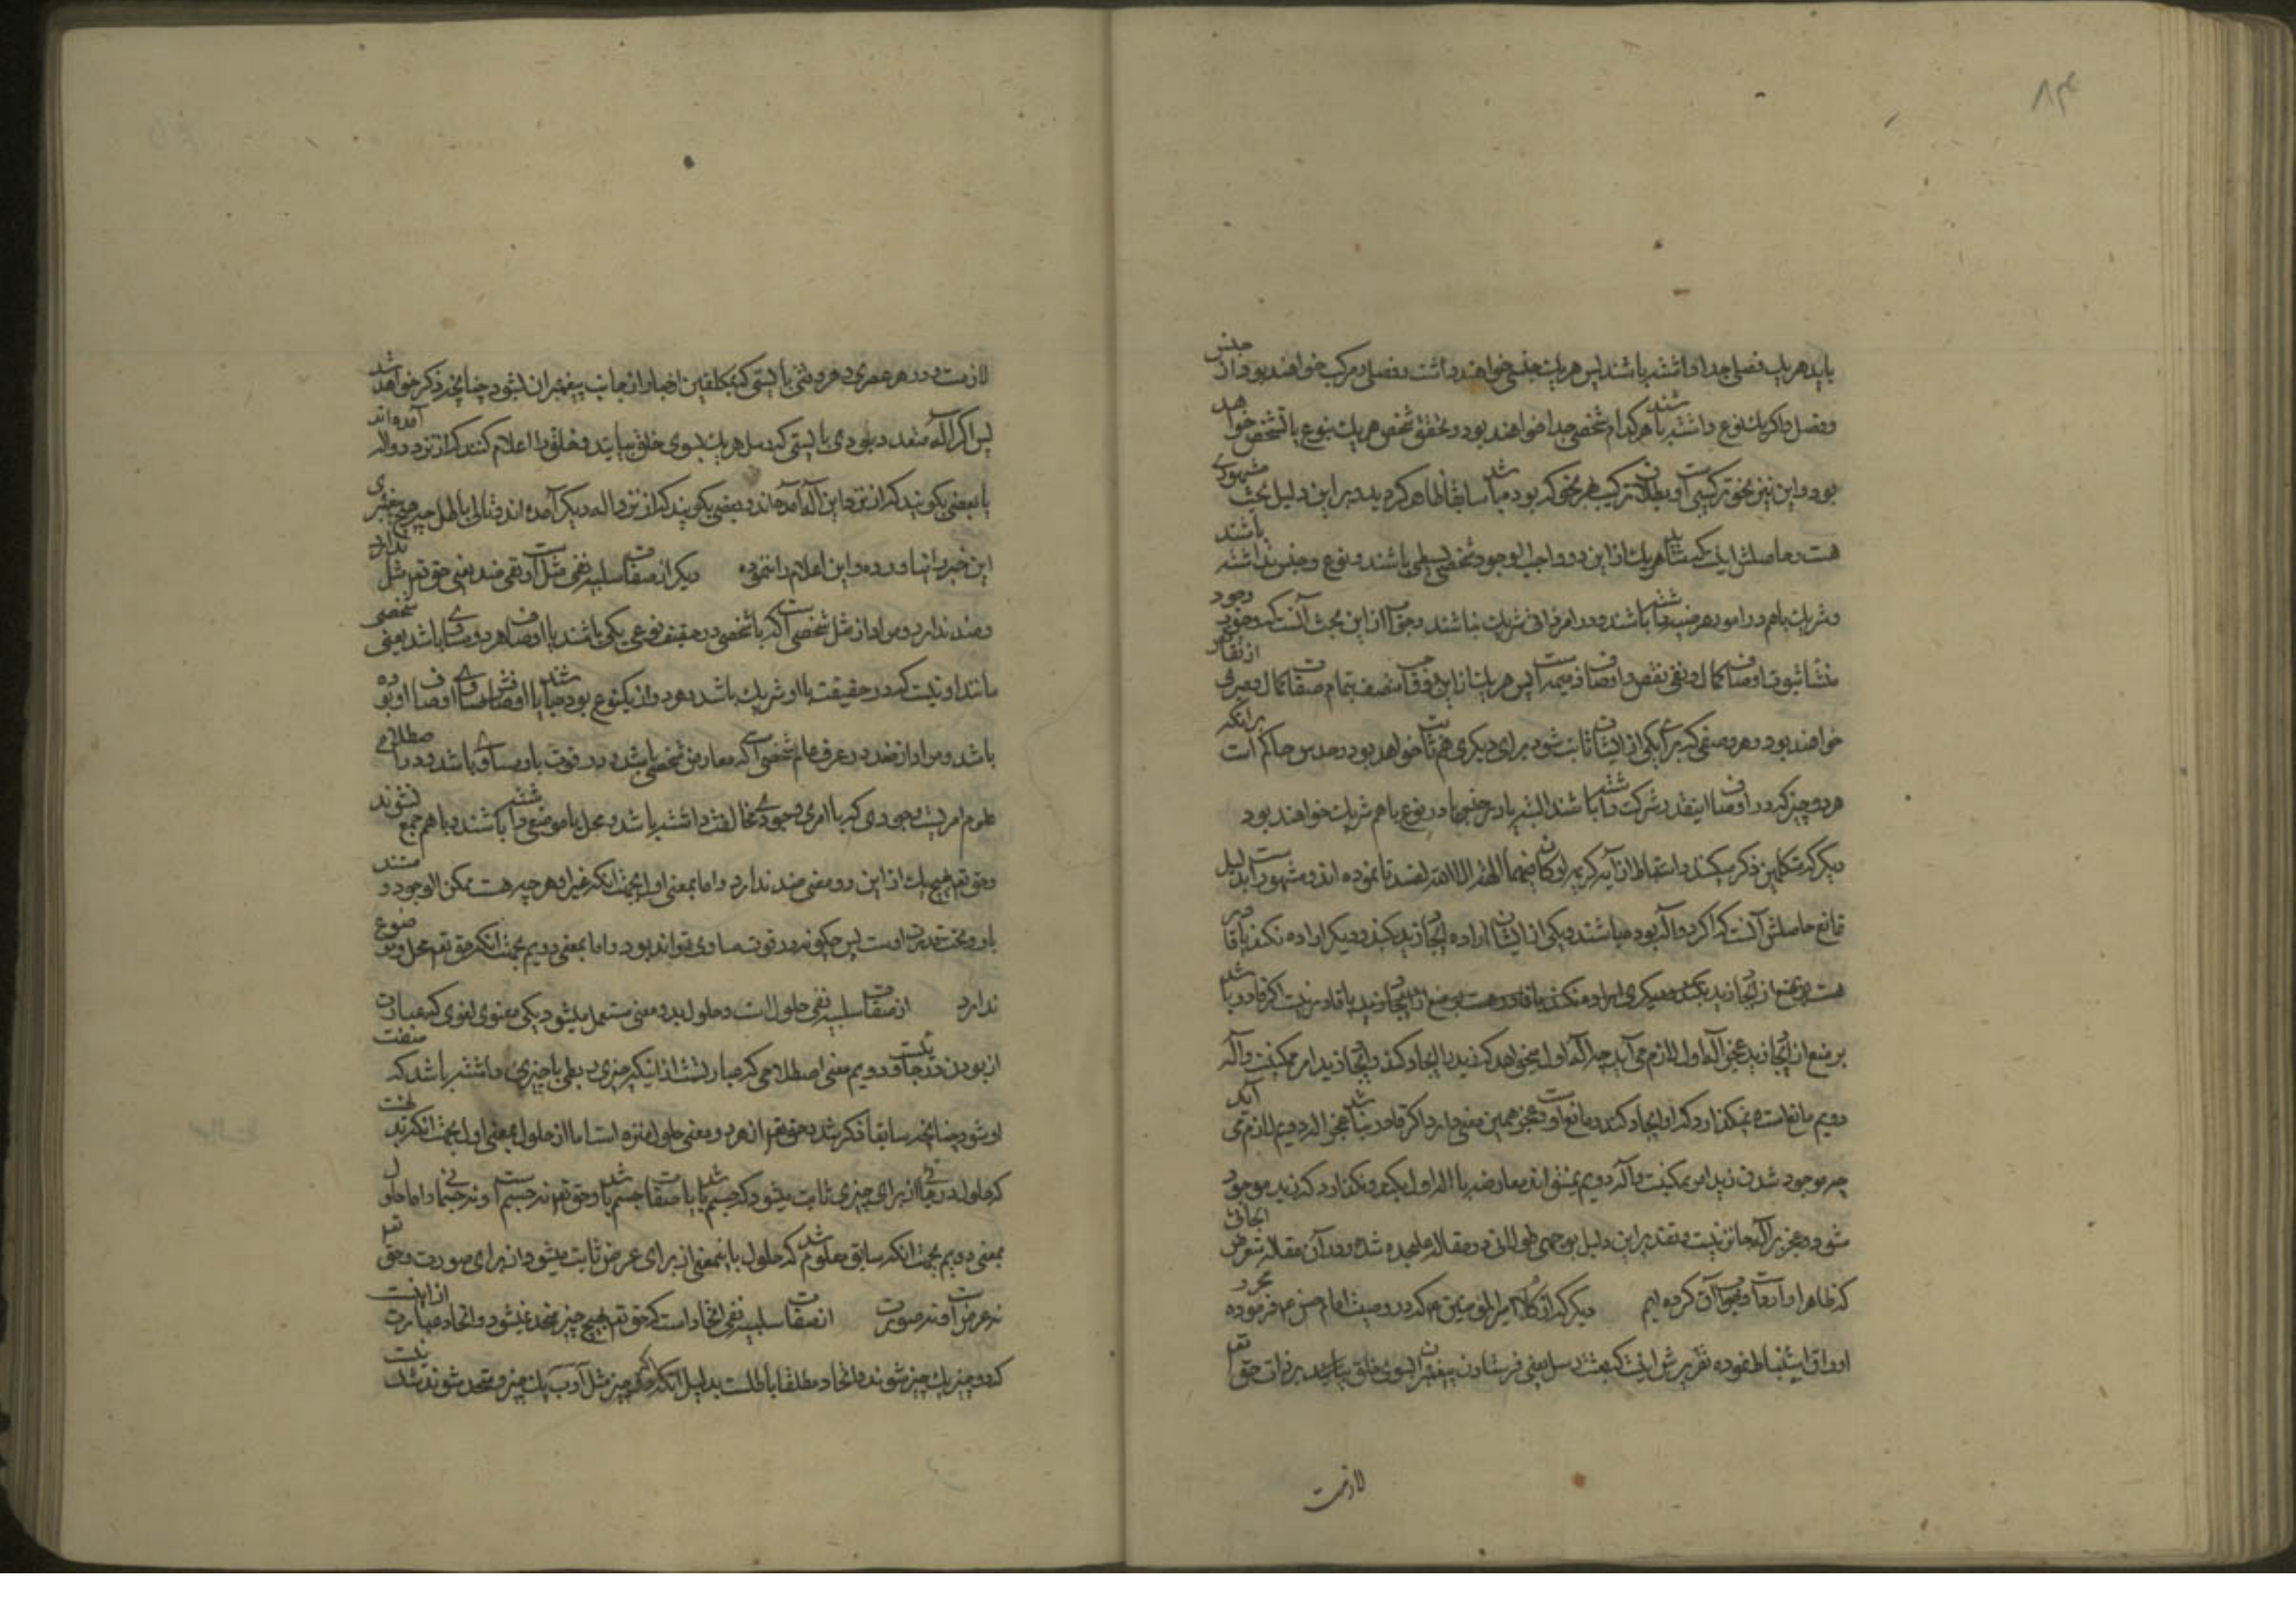 باید هر یک فصلی جدا داشته باشند پس هر یک جنسی خواهند داشت و فصلی و مرکب خواهند بود از جنس
و فصل و اگر یک نوع داشته باشند هر کدام شخصی جدا خواهند بود و تحقق شخص هر یک بنوع با تشخص خواهد
بود و این نیز نحو ترکیبی است و بطلان ترکیب هر نحو که بوده باشد سابقا ظاهر کردید و بر این دلیل بحث مشهوری
هست و حاصلش اینکه شاید هر یک از این دو واجب الوجود شخصی بسیطی باشند و نوع و جنس نداشته باشند
و شریک باهم در امور عرضیه داشته باشند و در امر ذاتی شریک نباشند و جواب از این بحث آنست که وجوب وجود
منشأ ثبوت اوصاف کمال و نفی نقص و اوصاف ذمیمه است پس هر یک از این دو واجب متصف بتمام صفات کمال و معرا از نقایص
خواهند بود و هر وصفی که برای یکی از ایشان ثابت شود برای دیکری هم ثابت خواهد بود و حدس حاکم است برآنکه
هر دو چیز که در اوصاف اینقدر شرکت داشته باشند البته یا در جنس یا در نوع باهم شریک خواهند بود
دیکر که متکلمین ذکر میکنند و استنباط از آیه کریمه لو کان فیهما آلهة الا الله لفسدتا نموده اند و مشهور است بدلیل
تمانع حاصلش آنست که اگر دو آله بوده باشند و یکی از ایشان اراده ایجاد زید بکند و دیکر اراده نکند یا قادر
هست بر منع از ایجاد زید یا قادر نیست اگر قادر باشد
بر منع از ایجاد زید عجز آله اول لازم می آید چه اله اول میخواهد که زید را ایجاد کند و ایجاد زید امر ممکنیست و آله
دویم مانع است و نمیکذارد که او ایجاد کند و مانع او است و عجز همین معنی دارد و اگر قادر نباشد عجز اله دویم لازم می آید
چه موجود شدن زید امر ممکنیست و آله دویم نمیتواند معارضه با اله اول بکند و نکذارد که زید موجود
شود و عجز بر آله جائز نیست و تقدیر این دلیل بوجهی طولانی در مقاله علیحده شده و در آن مقاله متعرض ابحاثی
که ظاهرا وارد است و جواب آن کرده ایم دیکر که از کلام امیر المؤمنین ع م که در وصیت امام حسن ع م فرموده
او را استنباط نموده تقریرش اینست که بعثت رسل یعنی فرستادن پیغمبران بسوی خلق بیاید بر ذات حق تعم
لازمست
لازمست و در هر عصری و هر وقتی بایستی که مکلفین اخبار از جانب پیغمبران بشود چنانچه ذکر خواهد شد
پس اگر آله متعدد بودی بایستی که رسل هر یک بسوی خلق بیایند و خلق را اعلام کنند که از نزد دو اله آمده اند
یا بعضی بکویند که از نزد این آله آمده اند و بعضی بکویند که از نزد اله دیکر آمده اند و تالی باطل چه هیچ پیغمبری
این خبر را نیاورده و این اعلام را ننموده دیکر از صفات سلبیه نفی مثل است و نفی ضد یعنی حق تعم مثل ندارد
و ضد ندارد و مراد از مثل شخصی است که با شخصی در حقیقت نوعی یکی باشند یا اوصاف هر دو مساوی باشد یعنی شخصی
مانند او نیست که در حقیقت با او شریک باشد و هر دو از یک نوع بوده باشند یا اوصافش مساوی اوصاف او بوده
باشد و مراد از ضد در عرف عام شخصی است که معارض شخصی باشد و در قوت با او مساوی باشد و در اصطلاح
علوم امریست وجودی که با امری وجودی مخالفت داشته باشد و محل یا موضوعی داشته باشند و باهم جمع نشوند
و حق تعم هیچ یک از این دو معنی ضد ندارد و اما بمعنی اول بجهت آنکه غیر او هر چه هست ممکن الوجود و مستند
باو و تحت قدرت اوست پس چکونه در قوت مساوی تواند بود و اما بمعنی دویم بجهت آنکه حق تعم محل و موضوع
ندارد از صفات سلبیه نفی حلول است و حلول بدو معنی مستعمل میشود یکی معنوی لغوی که عبارت
از بودن در جائی و دویم معنی اصطلاحی که عبارتست از اینکه چیزی ربطی با چیزی داشته باشد که صفت
او شود چنانچه سابقا ذکر شد و حق تعم از هر دو معنی حلول منزه است اما از حلول بمعنی اول بجهت آنکه
که حلول در جائی از برای چیزی ثابت میشود که جسم باشد یا صفات جسم باشد و حق تعم نه جسم است و نه جسمانی و اما حلول
بمعنی دویم بجهت آنکه سابق معلوم شد که حلول باینمعنی از برای عرض ثابت میشود و از برای صورت و حق تعم
نه عرض است و نه صورت از صفات سلبیه نفی اتحاد است که حق تعم بهیچ چیز متحد نمیشود و اتحاد عبارت از اینست
که دو چیز یک چیز شوند و اتحاد مطلقا باطلست بدلیل آنکه اکر دو چیز مثل آ و ب یک چیز و متحد شوند